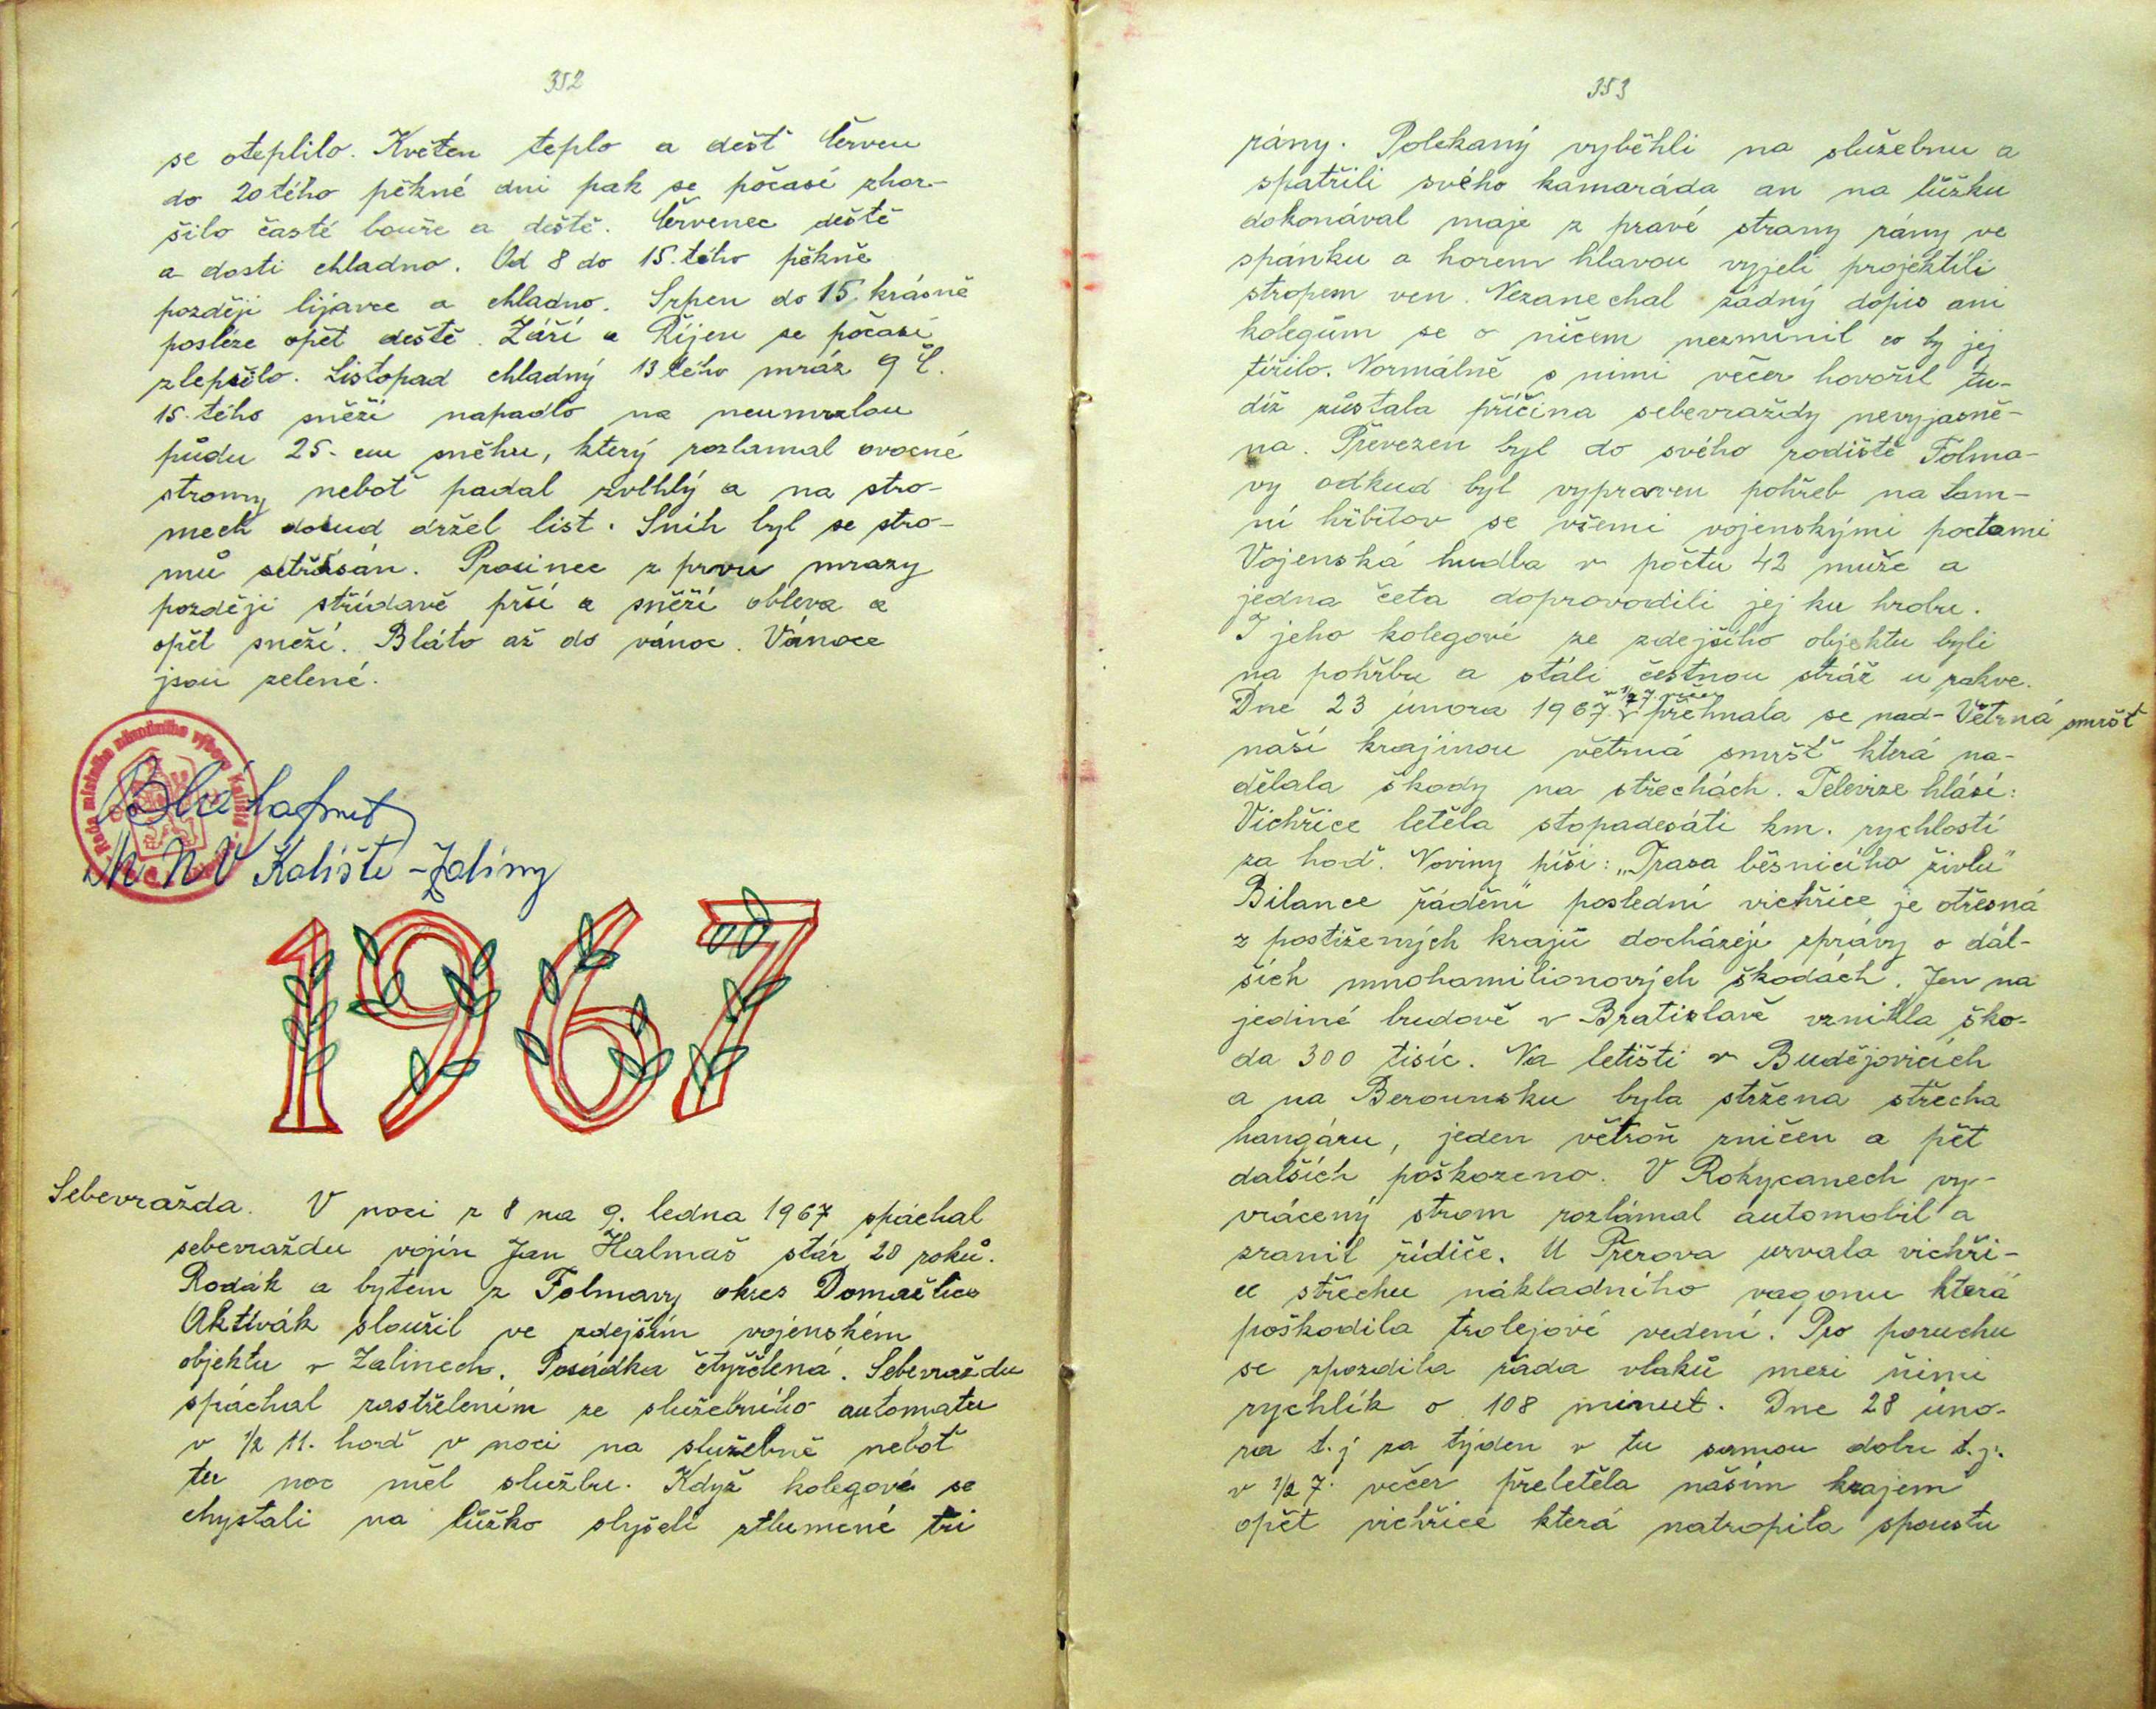 352
se oteplilo. Květen teplo a déšť Červen
do 20tého pěkné dni pak se počasí zhor-
šilo časté bouře a deště. Červenec deště
a dosti chladno. Od 8 do 15.tého pěkně
později lijavce a chladno. Srpen do 15 krásně
posléze opět deště. Září a Říjen se počasí
zlepšilo. Listopad chladný 13tého mráz 9 C.
15.tého sněží napadlo na neumrzlou
půdu 25-cm sněhu, který rozlamal ovocné
stromy neboť padal zvlhlý a na stro-
mech dosud držel list. Sníh byl se stro-
mů setřásán. Prosinec z prvu mrazy
později střídavě prší a sněží obleva a
opět sneží. Bláto až do vánoc. Vánoce
jsou zelené.
Rada místního národního výboru Kaliště
MNV Kaliště-Zaliny
1967
Sebevražda. V noci z 8 na 9. ledna 1967 spáchal
sebevraždu vojín Jan Halmaš stár 20 roků.
Rodák a bytem z Folmavy okres Domažlice
Aktivák sloužil ve zdejším vojenském
objektu v Zalinech. Posádka čtyřčlená. Sebevraždu
spáchal zastřelením ze služebního automatu
v 1/2 11. hod v noci na služebně neboť
tu noc měl službu. Když kolegové se
chystali na lůžko slyšeli ztlumené tři
353
rány. Polekaný vyběhli na služebnu a
spatřili svého kamaráda an na lůžku
dokonával maje z pravé strany rány ve
spánku a horem hlavou vyjeli projektili
stropem ven. Nezanechal žádný dopis ani
kolegům se o ničem nezmínil co by jej
tížilo. Normálně s nimi večer hovořil tu-
díž zůstala příčina sebevraždy nevyjasně-
na. Převezen byl do svého rodiště Folma-
vy odkud byl vypraven pohřeb na tam-
ní hřbitov se všemi vojenskými poctami
Vojenská hudba v počtu 42 muže a
jedna četa doprovodili jej ku hrobu.
I jeho kolegové ze zdejšího objektu byli
na pohřbu a stáli čestnou stráž u rakve.
v 1/2 7. večer
Dne 23 února 1967 přehnala se nad- Větrná smršť
naší krajinou větrná smršť která na-
dělala škody na střechách. Televize hlásí:
Vichřice letěla stopadesáti km. rychlostí
za hod. Noviny píší: „Trasa běsnicího živlu"
Bilance řádění" poslední vichřice je otřesná
z postižených krajů docházejí zprávy o dal-
ších mnohamilionových škodách. Jen na
jediné budově v Bratislavě vznikla ško-
da 300 tisíc. Na letišti v Budějovicích
a na Berounsku byla stržena střecha
hangáru, jeden větroň zničen a pět
dalších poškozeno. V Rokycanech vy-
vrácený strom rozlámal automobil a
zranil řidiče. U Přerova urvala vichři-
ce střechu nákladního vagonu která
poškodila trolejové vedení. Pro poruchu
se zpozdila řada vlaků mezi nimi
rychlík o 108 minut. Dne 28 úno-
ra t.j za týden v tu samou dobu t.j.
v 1/2 7. večer přeletěla naším krajem
opět vichřice která natropila spoustu